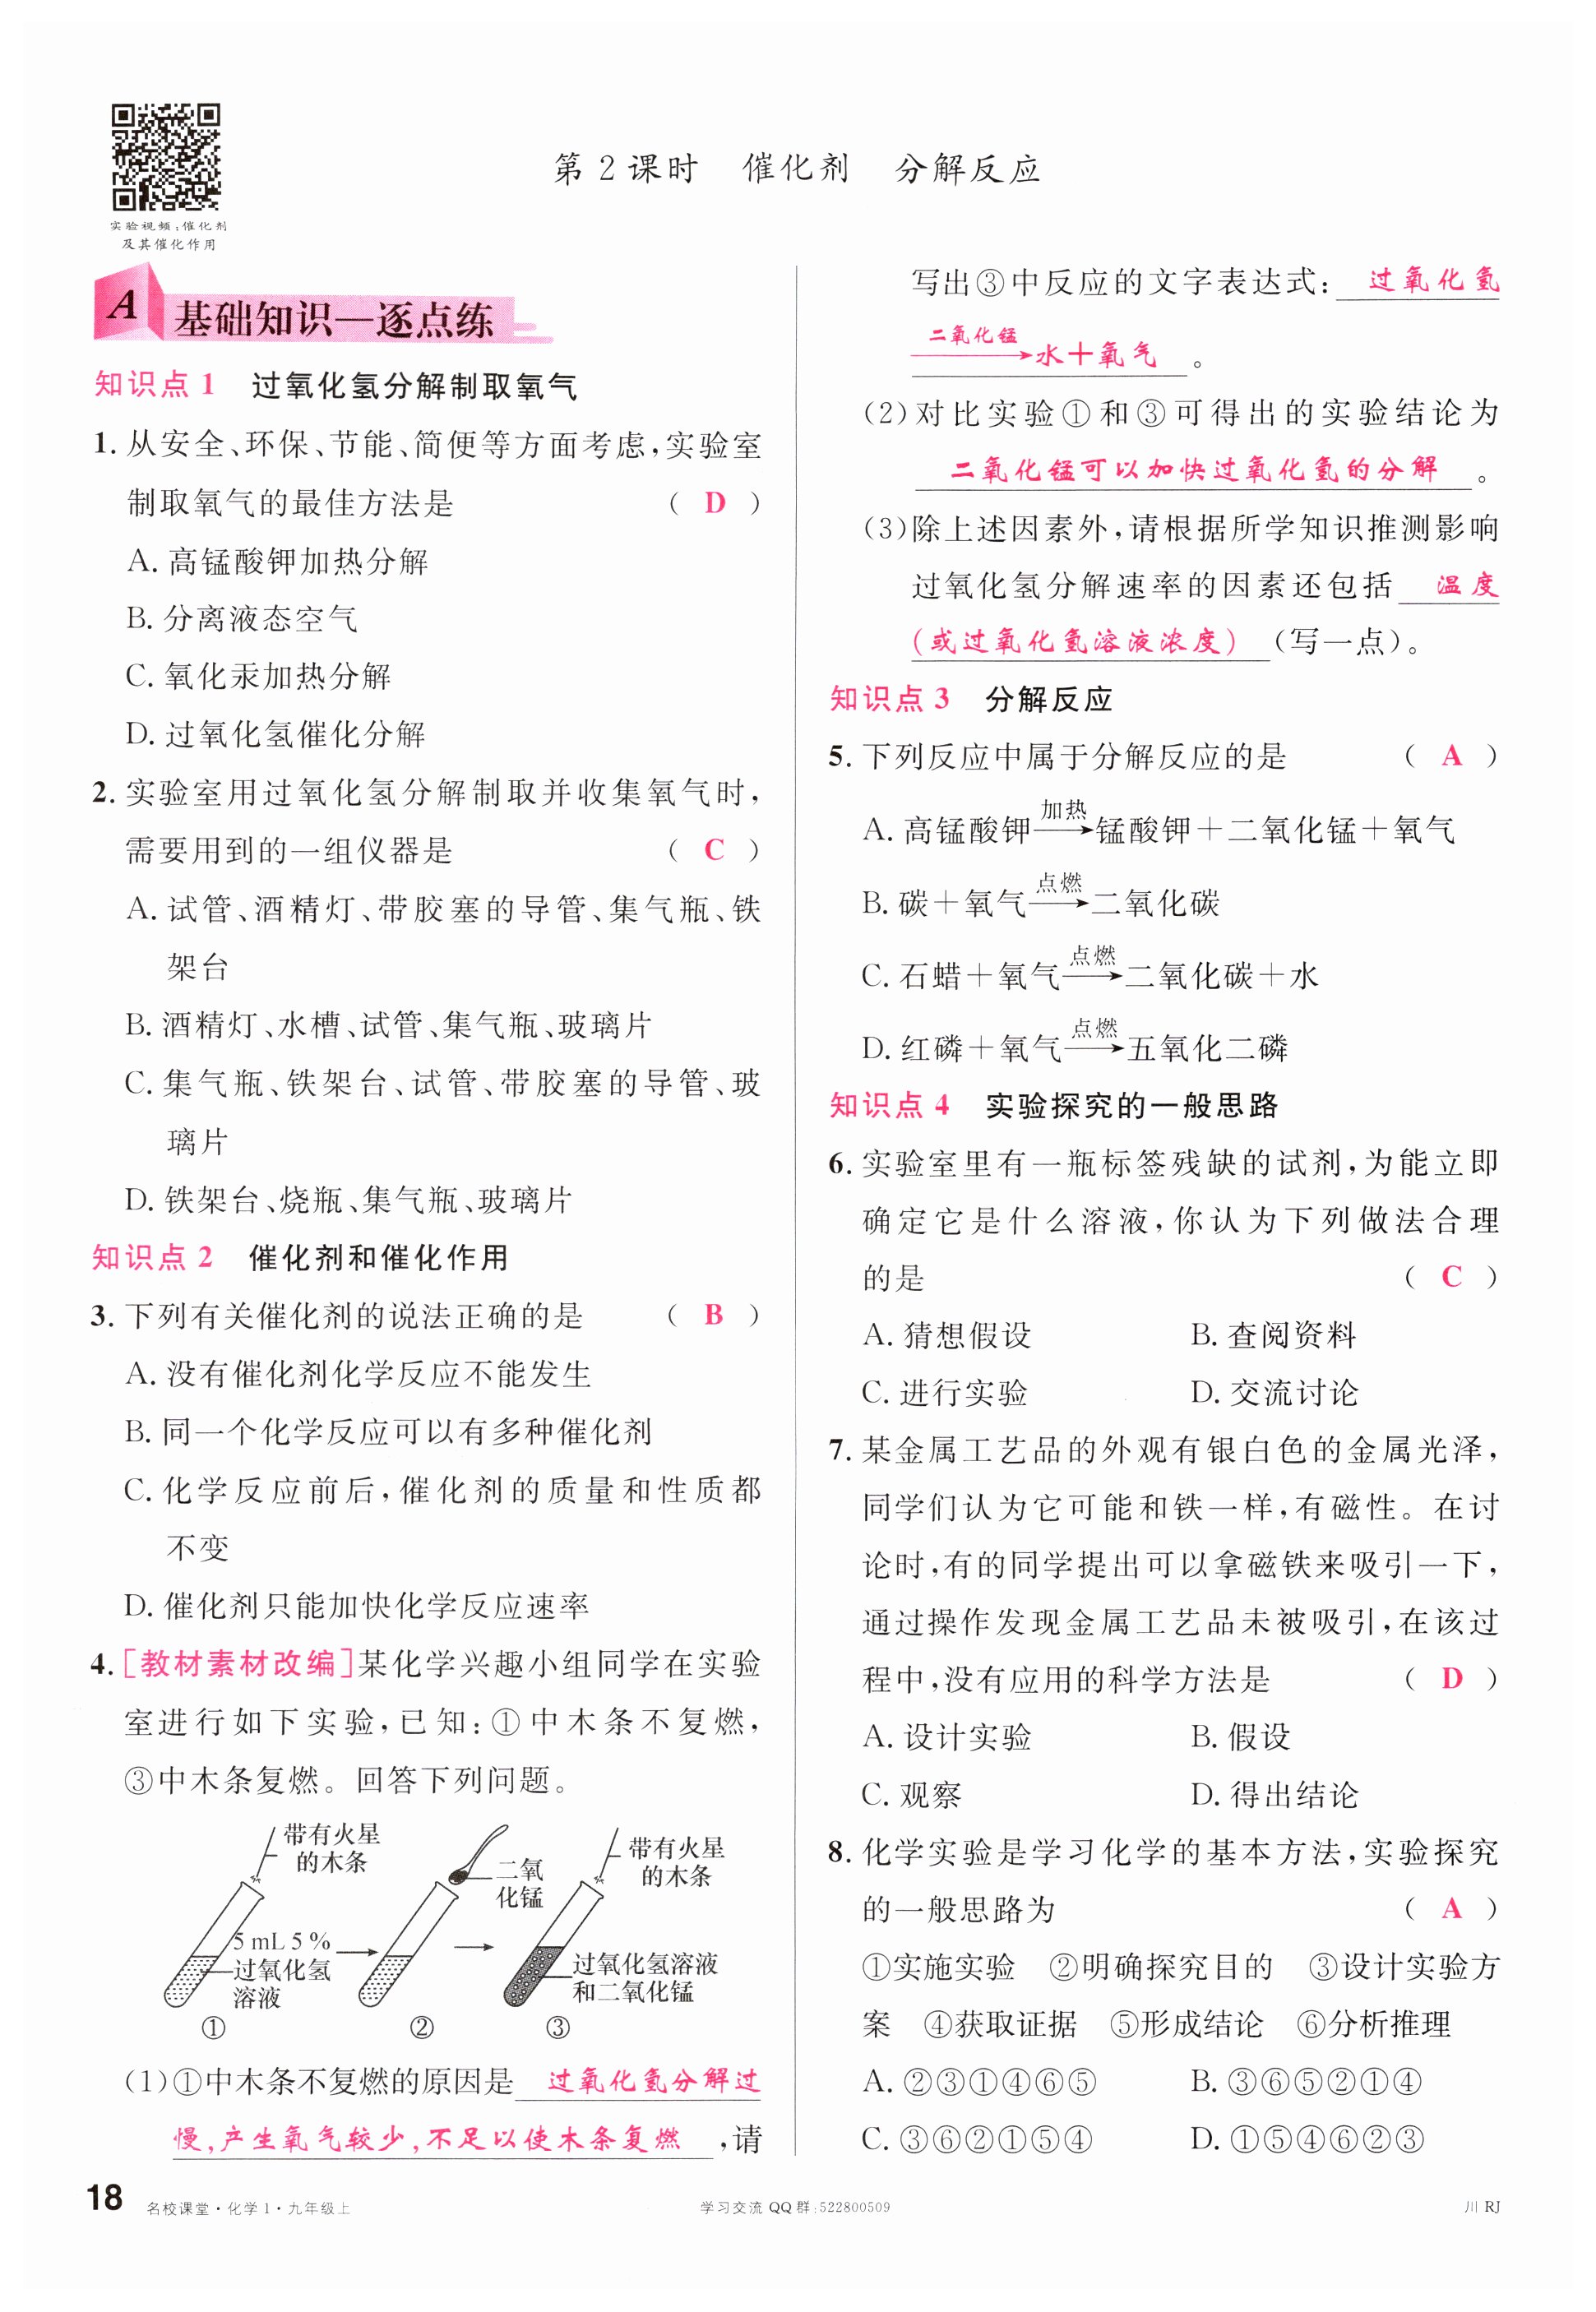 第2课时 催化剂 分解反应
实验视频:催化剂
及其催化作用
A 基础知识—逐点练
知识点1 过氧化氢分解制取氧气
1. 从安全、环保、节能、简便等方面考虑,实验室
制取氧气的最佳方法是 ( D )
A. 高锰酸钾加热分解
B. 分离液态空气
C. 氧化汞加热分解
D. 过氧化氢催化分解
2. 实验室用过氧化氢分解制取并收集氧气时,
需要用到的一组仪器是 ( C )
A. 试管、酒精灯、带胶塞的导管、集气瓶、铁
架台
B. 酒精灯、水槽、试管、集气瓶、玻璃片
C. 集气瓶、铁架台、试管、带胶塞的导管、玻
璃片
D. 铁架台、烧瓶、集气瓶、玻璃片
知识点2 催化剂和催化作用
3. 下列有关催化剂的说法正确的是 ( B )
A. 没有催化剂化学反应不能发生
B. 同一个化学反应可以有多种催化剂
C. 化学反应前后,催化剂的质量和性质都
不变
D. 催化剂只能加快化学反应速率
4. [教材素材改编]某化学兴趣小组同学在实验
室进行如下实验,已知:①中木条不复燃,
③中木条复燃。回答下列问题。
带有火星
的木条
5 mL 5%
过氧化氢
溶液
①
二氧
化锰
②
带有火星
的木条
过氧化氢溶液
和二氧化锰
③
(1)①中木条不复燃的原因是 过氧化氢分解过
慢,产生氧气较少,不足以使木条复燃 ,请
写出③中反应的文字表达式: 过氧化氢
二氧化锰
→水+氧气 。
(2)对比实验①和③可得出的实验结论为
二氧化锰可以加快过氧化氢的分解 。
(3)除上述因素外,请根据所学知识推测影响
过氧化氢分解速率的因素还包括 温度
(或过氧化氢溶液浓度) (写一点)。
知识点3 分解反应
5. 下列反应中属于分解反应的是 ( A )
加热
A. 高锰酸钾→锰酸钾+二氧化锰+氧气
点燃
B. 碳+氧气→二氧化碳
点燃
C. 石蜡+氧气→二氧化碳+水
点燃
D. 红磷+氧气→五氧化二磷
知识点4 实验探究的一般思路
6. 实验室里有一瓶标签残缺的试剂,为能立即
确定它是什么溶液,你认为下列做法合理
的是 ( C )
A. 猜想假设 B. 查阅资料
C. 进行实验 D. 交流讨论
7. 某金属工艺品的外观有银白色的金属光泽,
同学们认为它可能和铁一样,有磁性。在讨
论时,有的同学提出可以拿磁铁来吸引一下,
通过操作发现金属工艺品未被吸引,在该过
程中,没有应用的科学方法是 ( D )
A. 设计实验 B. 假设
C. 观察 D. 得出结论
8. 化学实验是学习化学的基本方法,实验探究
的一般思路为 ( A )
①实施实验 ②明确探究目的 ③设计实验方
案 ④获取证据 ⑤形成结论 ⑥分析推理
A. ②③①④⑥⑤ B. ③⑥⑤②①④
C. ③⑥②①⑤④ D. ①⑤④⑥②③
18 名校课堂·化学1·九年级上 学习交流QQ群:522800509 川 RJ